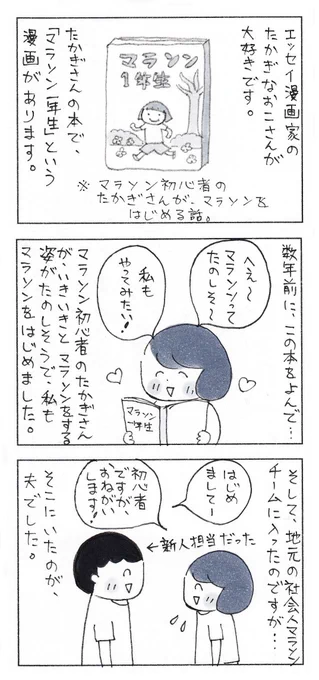 エッセイ漫画家の
たかぎなおこさんが
大好きです。
マラソン
1年生
たかぎさんの本で、
「マラソン一年生」という
漫画があります。
※マラソン初心者の
たかぎさんが、マラソンを
はじめる話。
数年前に、この本をよんで…
へえ〜
マラソンって
たのしそ〜
私も
やってみたい!
マラソン
1年生
マラソン初心者のたかぎさん
が、いきいきとマラソンをする
姿がたのしそうで、私も
マラソンをはじめました。
そして、地元の社会人マラソン
チームに入ったのですが…
はじめ
ましてー
初心者
ですが
おねがい
します!
←新人担当だった
そこにいたのが、
夫でした。